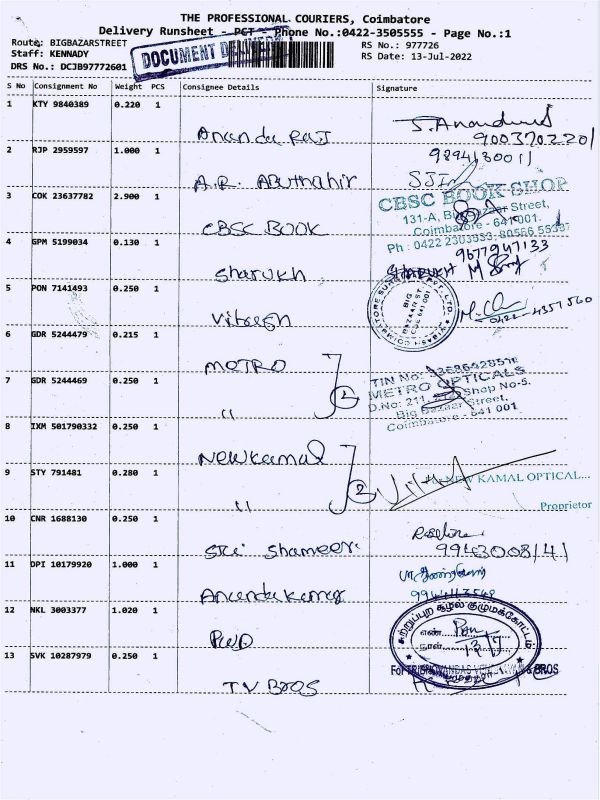 THE PROFESSIONAL COURIERS, Coimbatore
Delivery Runsheet - PCT - Phone No.:0422-3505555 - Page No.:1
Route: BIGBAZARSTREET RS No.: 977726
Staff: KENNADY RS Date: 13-Jul-2022
DRS No.: DCJB97772601
DOCUMENT DELIVERY
S No Consignment No Weight PCS Consignee Details Signature
1 KTY 9840389 0.220 1
Ananda Raj S. Anand
9003702201
2 RJP 2959597 1.000 1 9894130011
A.R. Abuthahir
3 COK 23637782 2.900 1 CBSC BOOK SHOP
131-A, Big Bazaar Street,
Coimbatore - 641 001.
CBSC BOOK
Ph : 0422 2303933
4 GPM 5199034 0.130 1 9677947133
Sharukh SHARUKH
5 PON 7141493 0.250 1
BIG BAZAAR ST. CBE 641 001
0422-4351560
6 GDR 5244479 0.215 1
METRO
7 GDR 5244469 0.250 1 TIN No:
" 2 METRO OPTICALS
D.No: 211, Shop No-5.
Big Bazaar Street,
Coimbatore - 641 001
8 IXM 501790332 0.250 1
New Kamal
9 STY 791481 0.280 1 NEW KAMAL OPTICAL...
" 2
Proprietor
10 CNR 1688130 0.250 1
Sri Shameer 9943008141
11 DPI 10179920 1.000 1
Ananda Kumar
12 NKL 3003377 1.020 1
PWD
சுற்றுப்புற சூழல் குழுமக்கோட்டம்
எண்
நாள்
13 SVK 10287979 0.250 1
TV BROS
& BROS